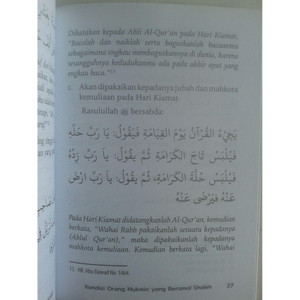 Dikatakan kepada Ahli Al-Qur'an pada Hari Kiamat,
"Bacalah dan naiklah serta baguskanlah bacaanmu
sebagaimana engkau membaguskannya di dunia, karena
sesungguhnya kedudukanmu ada pada akhir ayat yang
engkau baca."¹¹
c. Akan dipakaikan kepadanya jubah dan mahkota
kemuliaan pada Hari Kiamat
Rasulullah ﷺ bersabda:
يَجِيْءُ الْقُرْآنُ يَوْمَ الْقِيَامَةِ فَيَقُوْلُ: يَا رَبِّ حَلِّهِ
فَيُلْبَسُ تَاجَ الْكَرَامَةِ ثُمَّ يَقُوْلُ: يَا رَبِّ زِدْهُ
فَيُلْبَسُ حُلَّةَ الْكَرَامَةِ، ثُمَّ يَقُوْلُ: يَا رَبِّ ارْضَ
عَنْهُ فَيَرْضَى عَنْهُ
Pada Hari Kiamat didatangkanlah Al-Qur'an, kemudian
berkata, "Wahai Rabb pakaikanlah sesuatu kepadanya
(Ahlul Qur'an)," maka dipakaikanlah kepadanya
mahkota kemuliaan. Kemudian berkata lagi, "Wahai
11 HR. Abu Dawud No. 1464.
Kondisi Orang Mukmin yang Beramal Shaleh 27